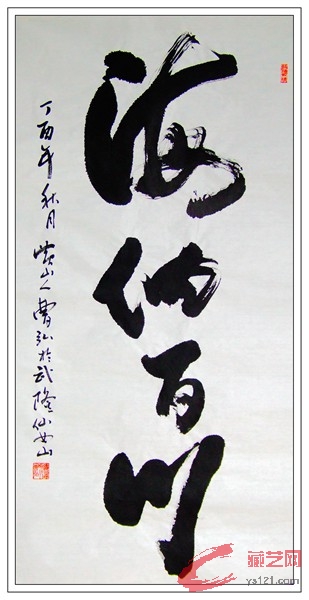 海纳百川
丁酉年秋月黄山人曹弘於武隆仙女山
藏艺网
ys121.com